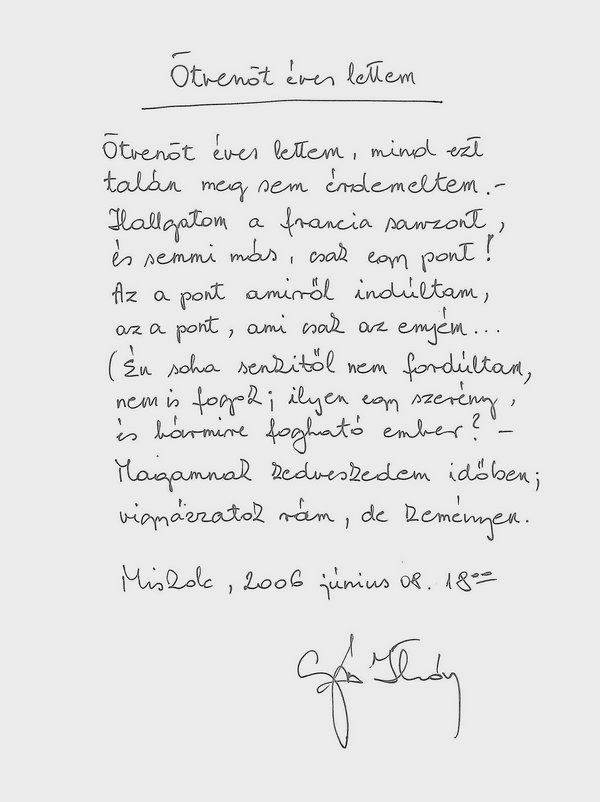 Ötvenöt éves lettem
Ötvenöt éves lettem, mind ezt
talán meg sem érdemeltem.-
Hallgatom a francia sanzont,
és semmi más, csak egy pont!
Az a pont amiről indúltam,
az a pont, ami csak az enyém...
(Én soha senkitől nem fordúltam,
nem is fogok; ilyen egy szerény,
és bármire fogható ember? -
Magamnak kedveskedem időben;
vigyázzatok rám, de keményen.
Miskolc, 2006 június 08. 18ºº